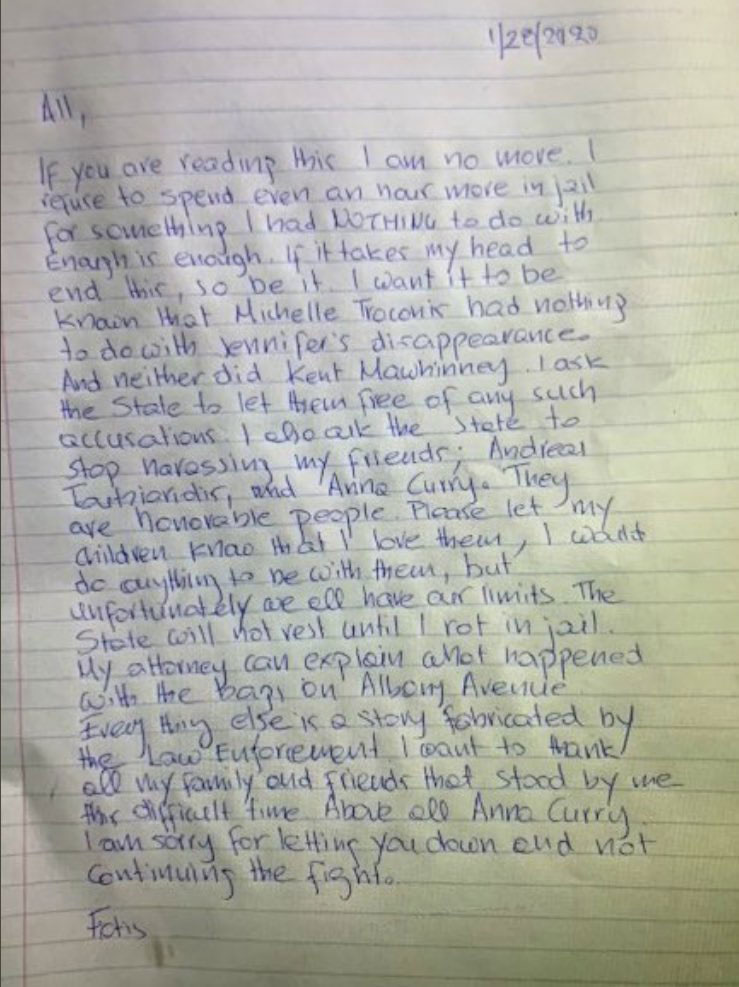 1/28/2020
All,
If you are reading this I am no more. I
refuse to spend even an hour more in jail
for something I had NOTHING to do with
Enough is enough. If it takes my head to
end this, so be it. I want it to be
known that Michelle Troconis had nothing
to do with Jennifer's disappearance.
And neither did Kent Mawhinney. I ask
the State to let them free of any such
accusations. I also ask the State to
stop harassing my friends; Andreas
and Anna Curry. They
are honorable people. Please let my
children know that I love them, I would
do anything to be with them, but
unfortunately we all have our limits. The
State will not rest until I rot in jail.
My attorney can explain what happened
with the bags on Albany Avenue
Every thing else is a story fabricated by
the Law Enforcement. I want to thank
all my family and friends that stood by me
this difficult time Above all Anna Curry.
I am sorry for letting you down and not
continuing the fight.
Fotis